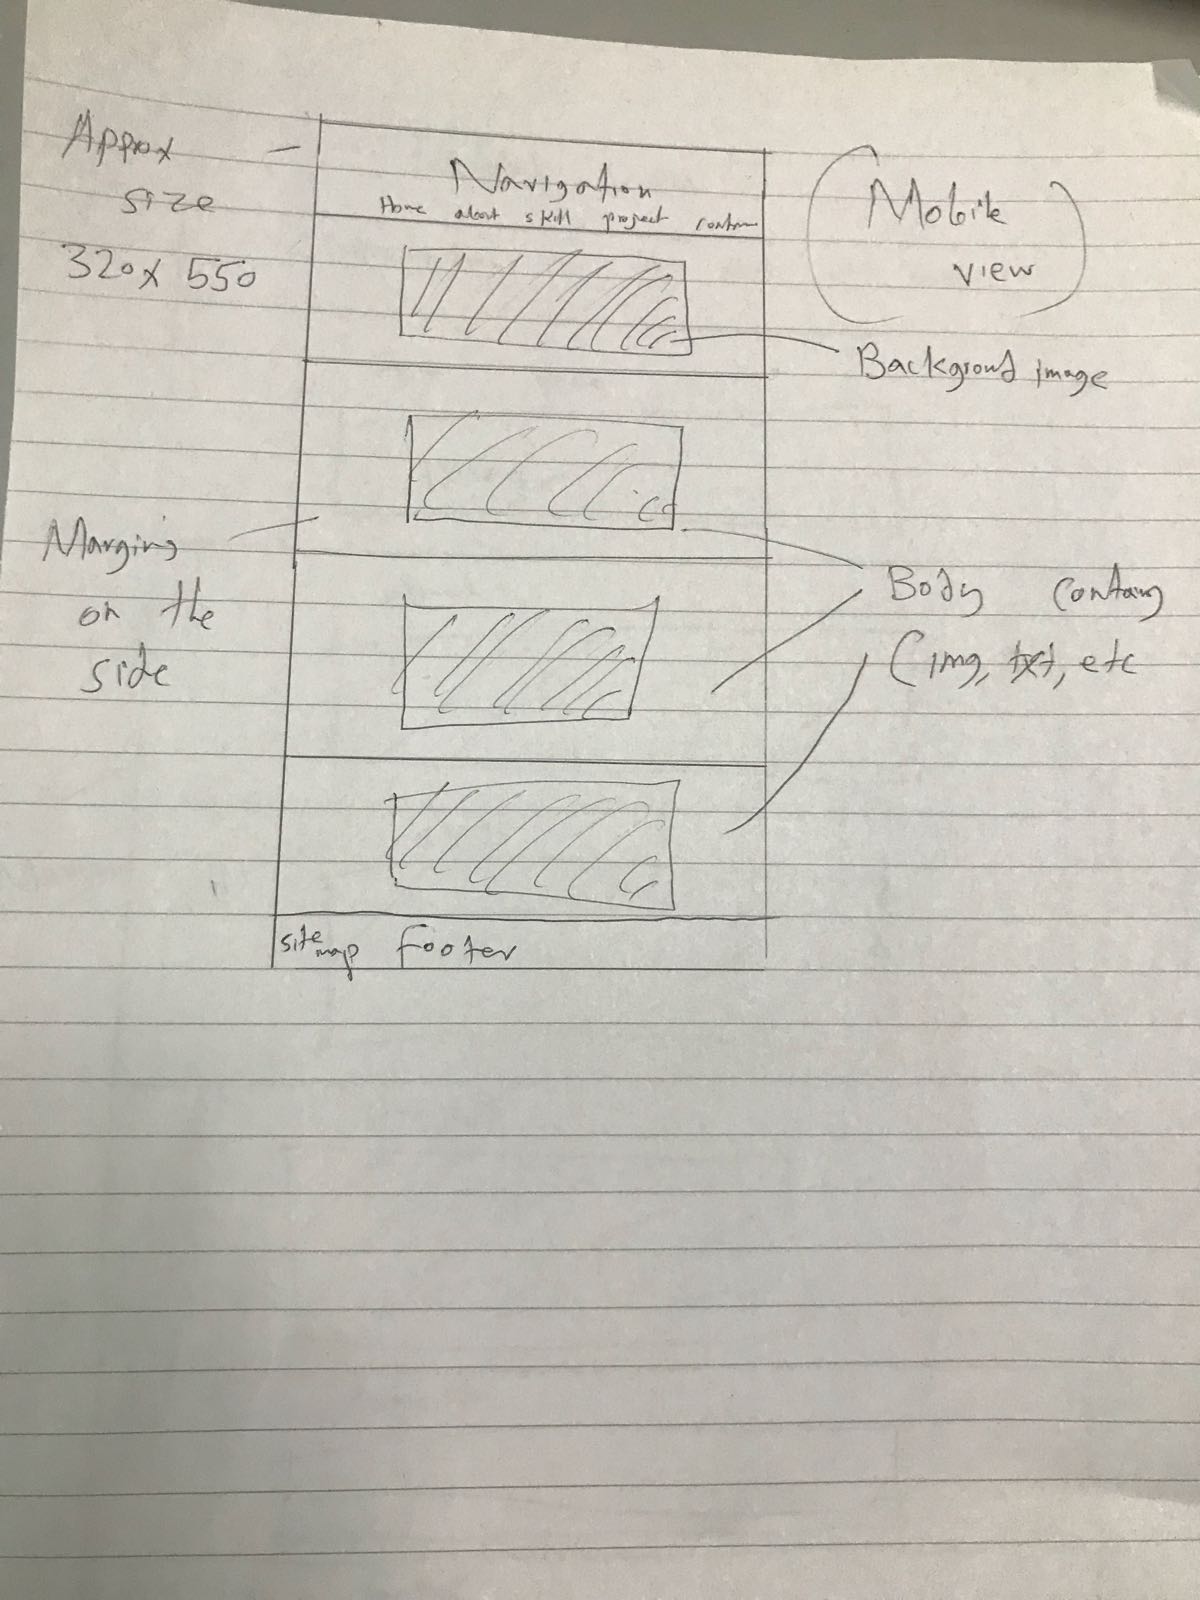 Approx
size
320 x 550
Navigation
Home about skill project
Mobile
view
Background image
Margins
on the
side
Body
(img, txt, etc
site map footer